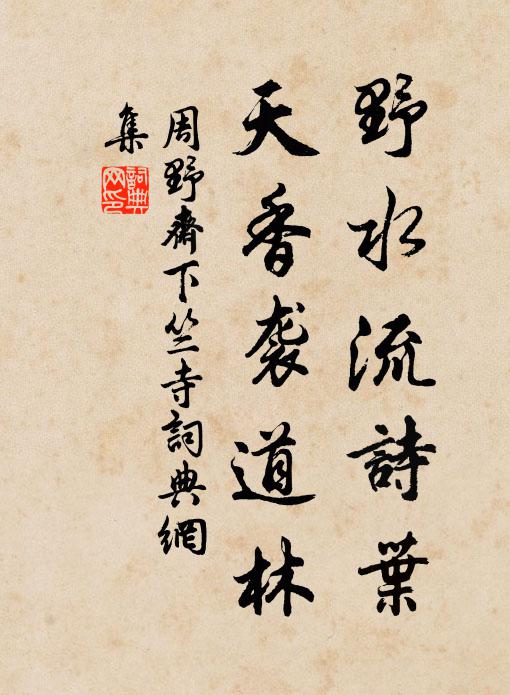 野水流詩葉
天香袭道林
周野齋下竺寺詞典網
集
詞典
网印